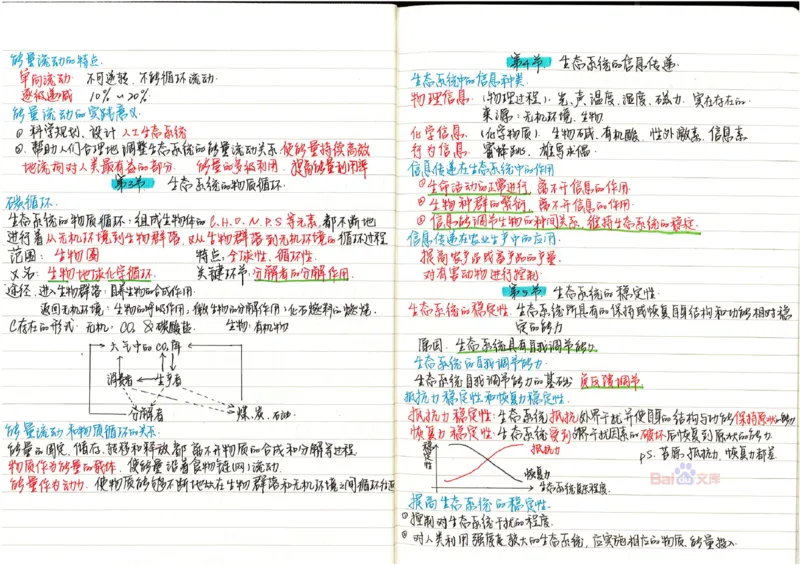 能量流动的特点.
单向流动 不可逆转、不能循环流动.
逐级递减 10%~20%.
能量流动的实践意义
① 科学规划、设计 人工生态系统
② 帮助人们合理地调整生态系统的能量流动关系 使能量持续高效
地流向对人类最有益的部分. 能量的多级利用. 提高能量利用率
第3节 生态系统的物质循环.
碳循环.
生态系统的物质循环：组成生物体的 C.H.O.N.P.S等元素, 都不断地
进行着从无机环境到生物群落, 又从生物群落到无机环境的循环过程
范围：生物圈 特点：全球性、循环性.
又名：生物地球化学循环. 关键环节：分解者的分解作用.
途径：进入生物群落：自养生物的合成作用.
返回无机环境：生物的呼吸作用；微生物的分解作用；化石燃料的燃烧.
C存在的形式：无机：CO₂ 及碳酸盐. 生物：有机物
大气中的CO₂库
消费者 生产者
分解者 煤、炭、石油.
能量流动和物质循环的关系
能量的固定、储存、转移和释放都离不开物质的合成和分解等过程
物质作为能量的载体, 使能量沿着食物链(网)流动.
能量作为动力, 使物质能够不断地在生物群落和无机环境之间循环往返
第4节 生态系统的信息传递.
生态系统中的信息种类.
物理信息.(物理过程). 光、声、温度、湿度、磁力. 实在存在的.
来源：无机环境、生物.
化学信息. (化学物质). 生物碱、有机酸、性外激素、信息素.
行为信息. 蜜蜂跳舞、雄鸟求偶.
信息传递在生态系统中的作用
① 生命活动的正常进行, 离不开信息的作用.
② 生物种群的繁衍, 离不开信息的作用.
③ 信息能调节生物的种间关系, 维持生态系统的稳定.
信息传递在农业生产中的应用.
提高农产品或畜产品的产量.
对有害动物进行控制.
第5节 生态系统的稳定性.
生态系统的稳定性. 生态系统所具有的保持或恢复自身结构和功能相对稳
定的能力
原因. 生态系统具有自我调节能力.
生态系统的自我调节能力.
生态系统自我调节能力的基础：负反馈调节.
抵抗力稳定性和恢复力稳定性.
抵抗力稳定性：生态系统抵抗外界干扰并使自身的结构与功能保持原状的能力
恢复力稳定性：生态系统受到外界干扰因素的破坏后恢复到原状的能力.
稳定性 抵抗力 恢复力 生态系统复杂程度.
PS. 苔原：抵抗力、恢复力都差
Baidu文库
提高生态系统的稳定性.
① 控制对生态系统干扰的程度.
② 对人类利用强度较大的生态系统, 应实施相应的物质、能量投入.